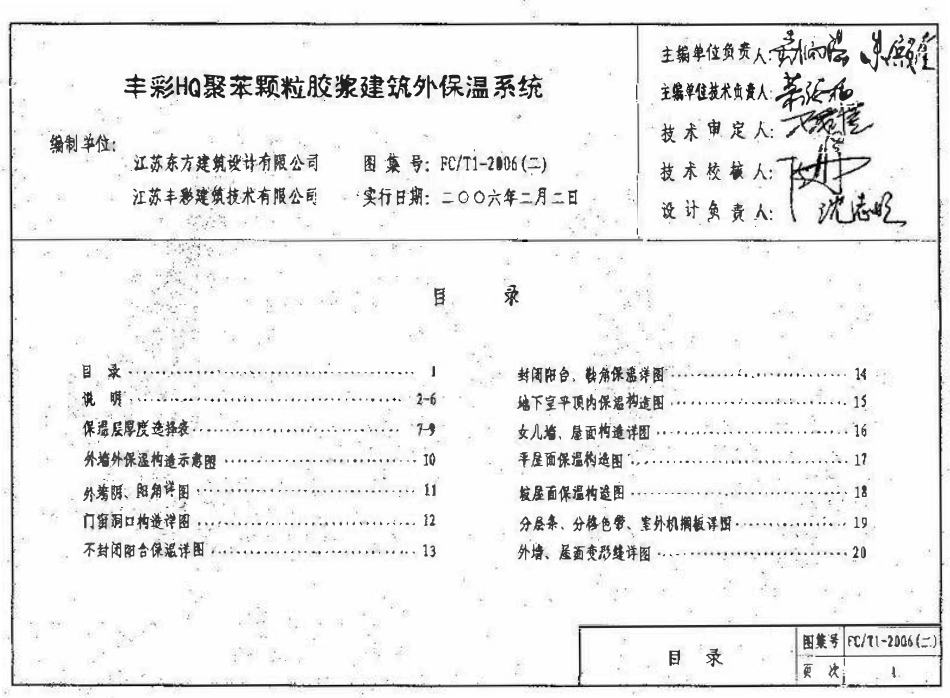 丰彩HQ聚苯颗粒胶浆建筑外保温系统
编制单位:
江苏东方建筑设计有限公司 图集号: FC/T1-2006(二)
江苏丰彩建筑技术有限公司 实行日期: 二〇〇六年二月二日
主编单位负责人:
主编单位技术负责人:
技术审定人:
技术校核人:
设计负责人: 沈志明
目 录
目 录 1
说 明 2-6
保温层厚度选择表 7-9
外墙外保温构造示意图 10
外墙阴、阳角详图 11
门窗洞口构造详图 12
不封闭阳台保温详图 13
封闭阳台、勒角保温详图 14
地下室平顶内保温构造图 15
女儿墙、屋面构造详图 16
平屋面保温构造图 17
坡屋面保温构造图 18
分层条、分格色带、室外机搁板详图 19
外墙、屋面变形缝详图 20
目 录
图集号 FC/T1-2006(二)
页 次 1